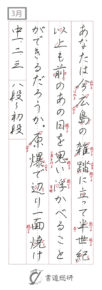 3月
あなたは今広島の雑踏に立って半世紀
以上も前のあの日を思い浮かべること
ができるだろうか。原爆で辺り一面焼け
中一・二・三 八段〜初段
書道総研